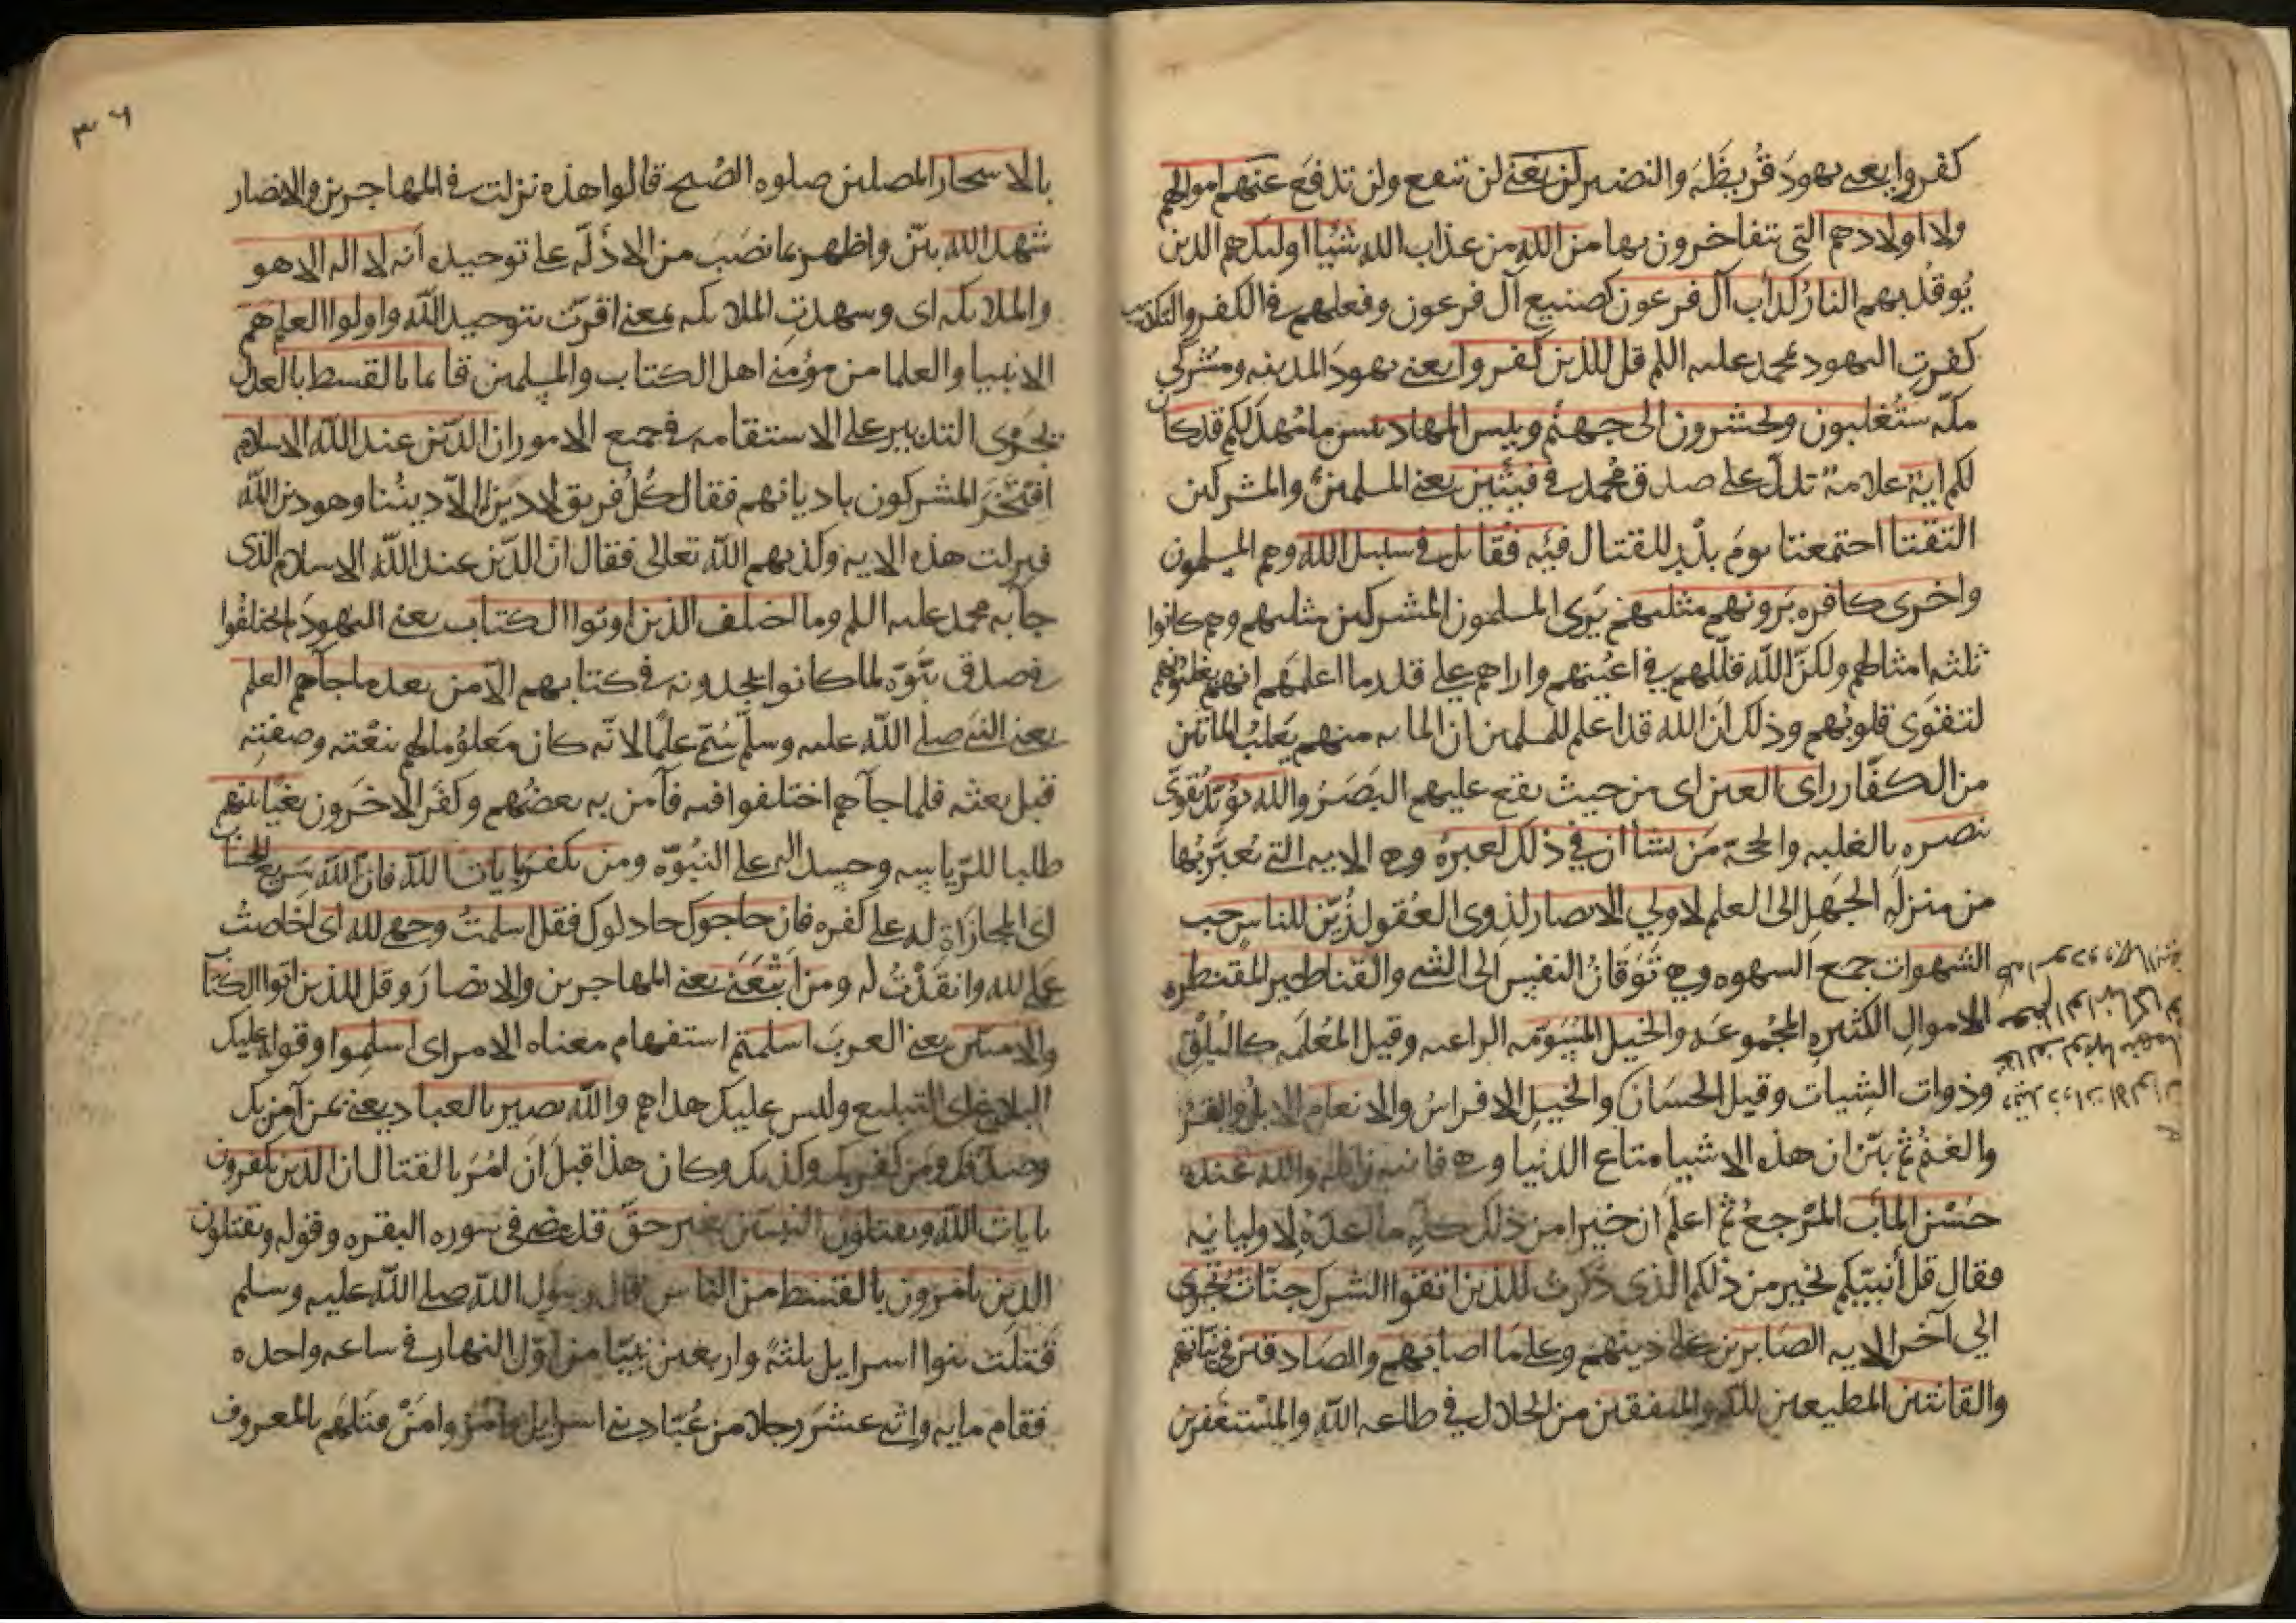 كفروا يعني يهود قُريظَة والنضير لن يغني لن تنفع ولن تدفع عنهم اموالهم
ولا اولادهم التي يتفاخرون بها من الله من عذاب الله شيّا اوليك هم الذين
يُوقد بهم النار كداب آل فرعون كصنيع آل فرعون وفعلهم في الكفر والتكذيب
كفرت اليهود بمحمد عليه اللم قل للذين كفروا يعني يهود المدينه ومشركي
مكّه ستُغلبون وتحشرون الى جهنّم وبيس المهاد بيس ما مُهد لكم قد كان
لكم اية علامة تدل على صدق محمد في فيئتين يعني المسلمين والمشركين
التقتا اجتمعتا يوم بدر للقتال فيه فقاتل في سبيل الله وهم المسلمون
واخرى كافره يَرونهم مثليهم يَرى المسلمون المشركين مثليهم وهم كانوا
ثلثه امثالهم ولكنّ الله قلّلهم في اعينهم واراهم على قدر ما اعلمهم انهم يغلبونهم
لتقوى قلوبهم وذلك انّ الله قد اعلم المسلمين ان المايه منهم يَغلب المائتين
من الكفّار راى العين اى من حيث يقع عليهم البَصَرُ والله يُؤيّد يُقوّى
بنصره بالغلبه والحجّة من يشا ان في ذلك لعبرة وهي الايه التي يُعبَر بها
من منزله الجهل الى العلم لاولي الابصار لذوى العُقول زُيّن للناس حب
الشهوات جمع الشهوه وهي تَوَقانُ النفس الى الشي والقناطير المقنطره
الاموال الكثيره المجموعه والخيل المسوّمه الراعيه وقيل المُعلَمَه كالبُلْقِ
وذوات الشيات وقيل الحسَانَ والخيل الافراسُ والانعام الابل والبقر
والغنم ثم بيّن ان هذه الاشيا متاع الدنيا وهي فانيه زايله والله عنده
حُسْن المآب المَرجع ثم اعلم ان خيرا من ذلك كلّه ما اعدّه لاوليايه
فقال قل أنبيّكم بخير من ذلكم الذى ذكرت للذين اتقوا الشرك جنّات تجرى
الى آخر الايه الصابرين على دينهم وعلى ما اصابهم والصادقين في نيّاتهم
والقانتين المطيعين لله والمنفقين من الحلال في طاعه الله والمستغفرين
٣٠٦
بالاسحار المصلين صلوه الصُبح قالوا هذه نزلت في المهاجرين والانصار
شهد الله بيّن واظهر بما نصَبَ من الادلّه على توحيده أنه لا اله الا هو
والملايكه اى وشهدت الملايكه بمعنى اقرّت بتوحيد الله واولوا العلم هم
الانبيا والعلما من مؤمنى اهل الكتاب والمسلمين قايما بالقسط بالعدل
يجرى التدبير على الاستقامه في جميع الامور ان الدّين عند الله الاسلام
افتَخَرَ المشركون باديانهم فقال كُلّ فريق لا دين الاّ ديننا وهو دين الله
فنزلت هذه الايه وكذبهم الله تعالى فقال انّ الدّين عند الله الاسلام الذى
جآ به محمد عليه اللم وما اختلف الذين اوتوا الكتاب يعني اليهود لم يختلفوا
في صدق نبُوّه لما كانوا يجدونه في كتابهم الاّ من بعد ما جآهم العلم
يعني النبي صلى الله عليه وسلّم سُمّى علمًا لانّه كان مَعلومًا لهم بنعْته وصفتِه
قبل بعثه فلما جآهم اختلفوا فيه فآمن به بعضُهم وكفَر الاخَرون بغيًا بينهم
طلبا للرّياسه وحسدا له على النبُوّه ومن يكفر بايات الله فانّ الله سَريع الحساب
اى المجازاة له على كفره فان حاجوك جادلوك فقل اسلمتُ وجهي لله اى اخلصتُ
عملي لله وانقدْتُ له ومن اتّبَعَن يعني المهاجرين والانصارَ وقل للذين اوتوا الكتاب
والاميّين يعني العربَ اسلمتم استفهام معناه الامر اى اسلموا وقوله عليك
البلاغ اى التبليغ وليس عليك هداهم والله بصير بالعباد يعني بمن آمن بك
وصدّقك ومن كفر بك وكذبك وكان هذا قبل اَن اُمرَ بالقتال ان الذين يكفرون
بايات الله ويقتلون النبيين بغير حقّ قد مضى في سوره البقره وقوله ويقتلون
الذين يامرون بالقسط من الناس قال رسول الله صلى الله عليه وسلم
قَتلَت بنوا اسرايل ثلثة واربعين نبيّا من اوّل النهار في ساعه واحده
فقام مايه واثنى عشَر رجلا من عُبّاد بني اسرايل فامروا مَنْ قتلهم بالمعروف